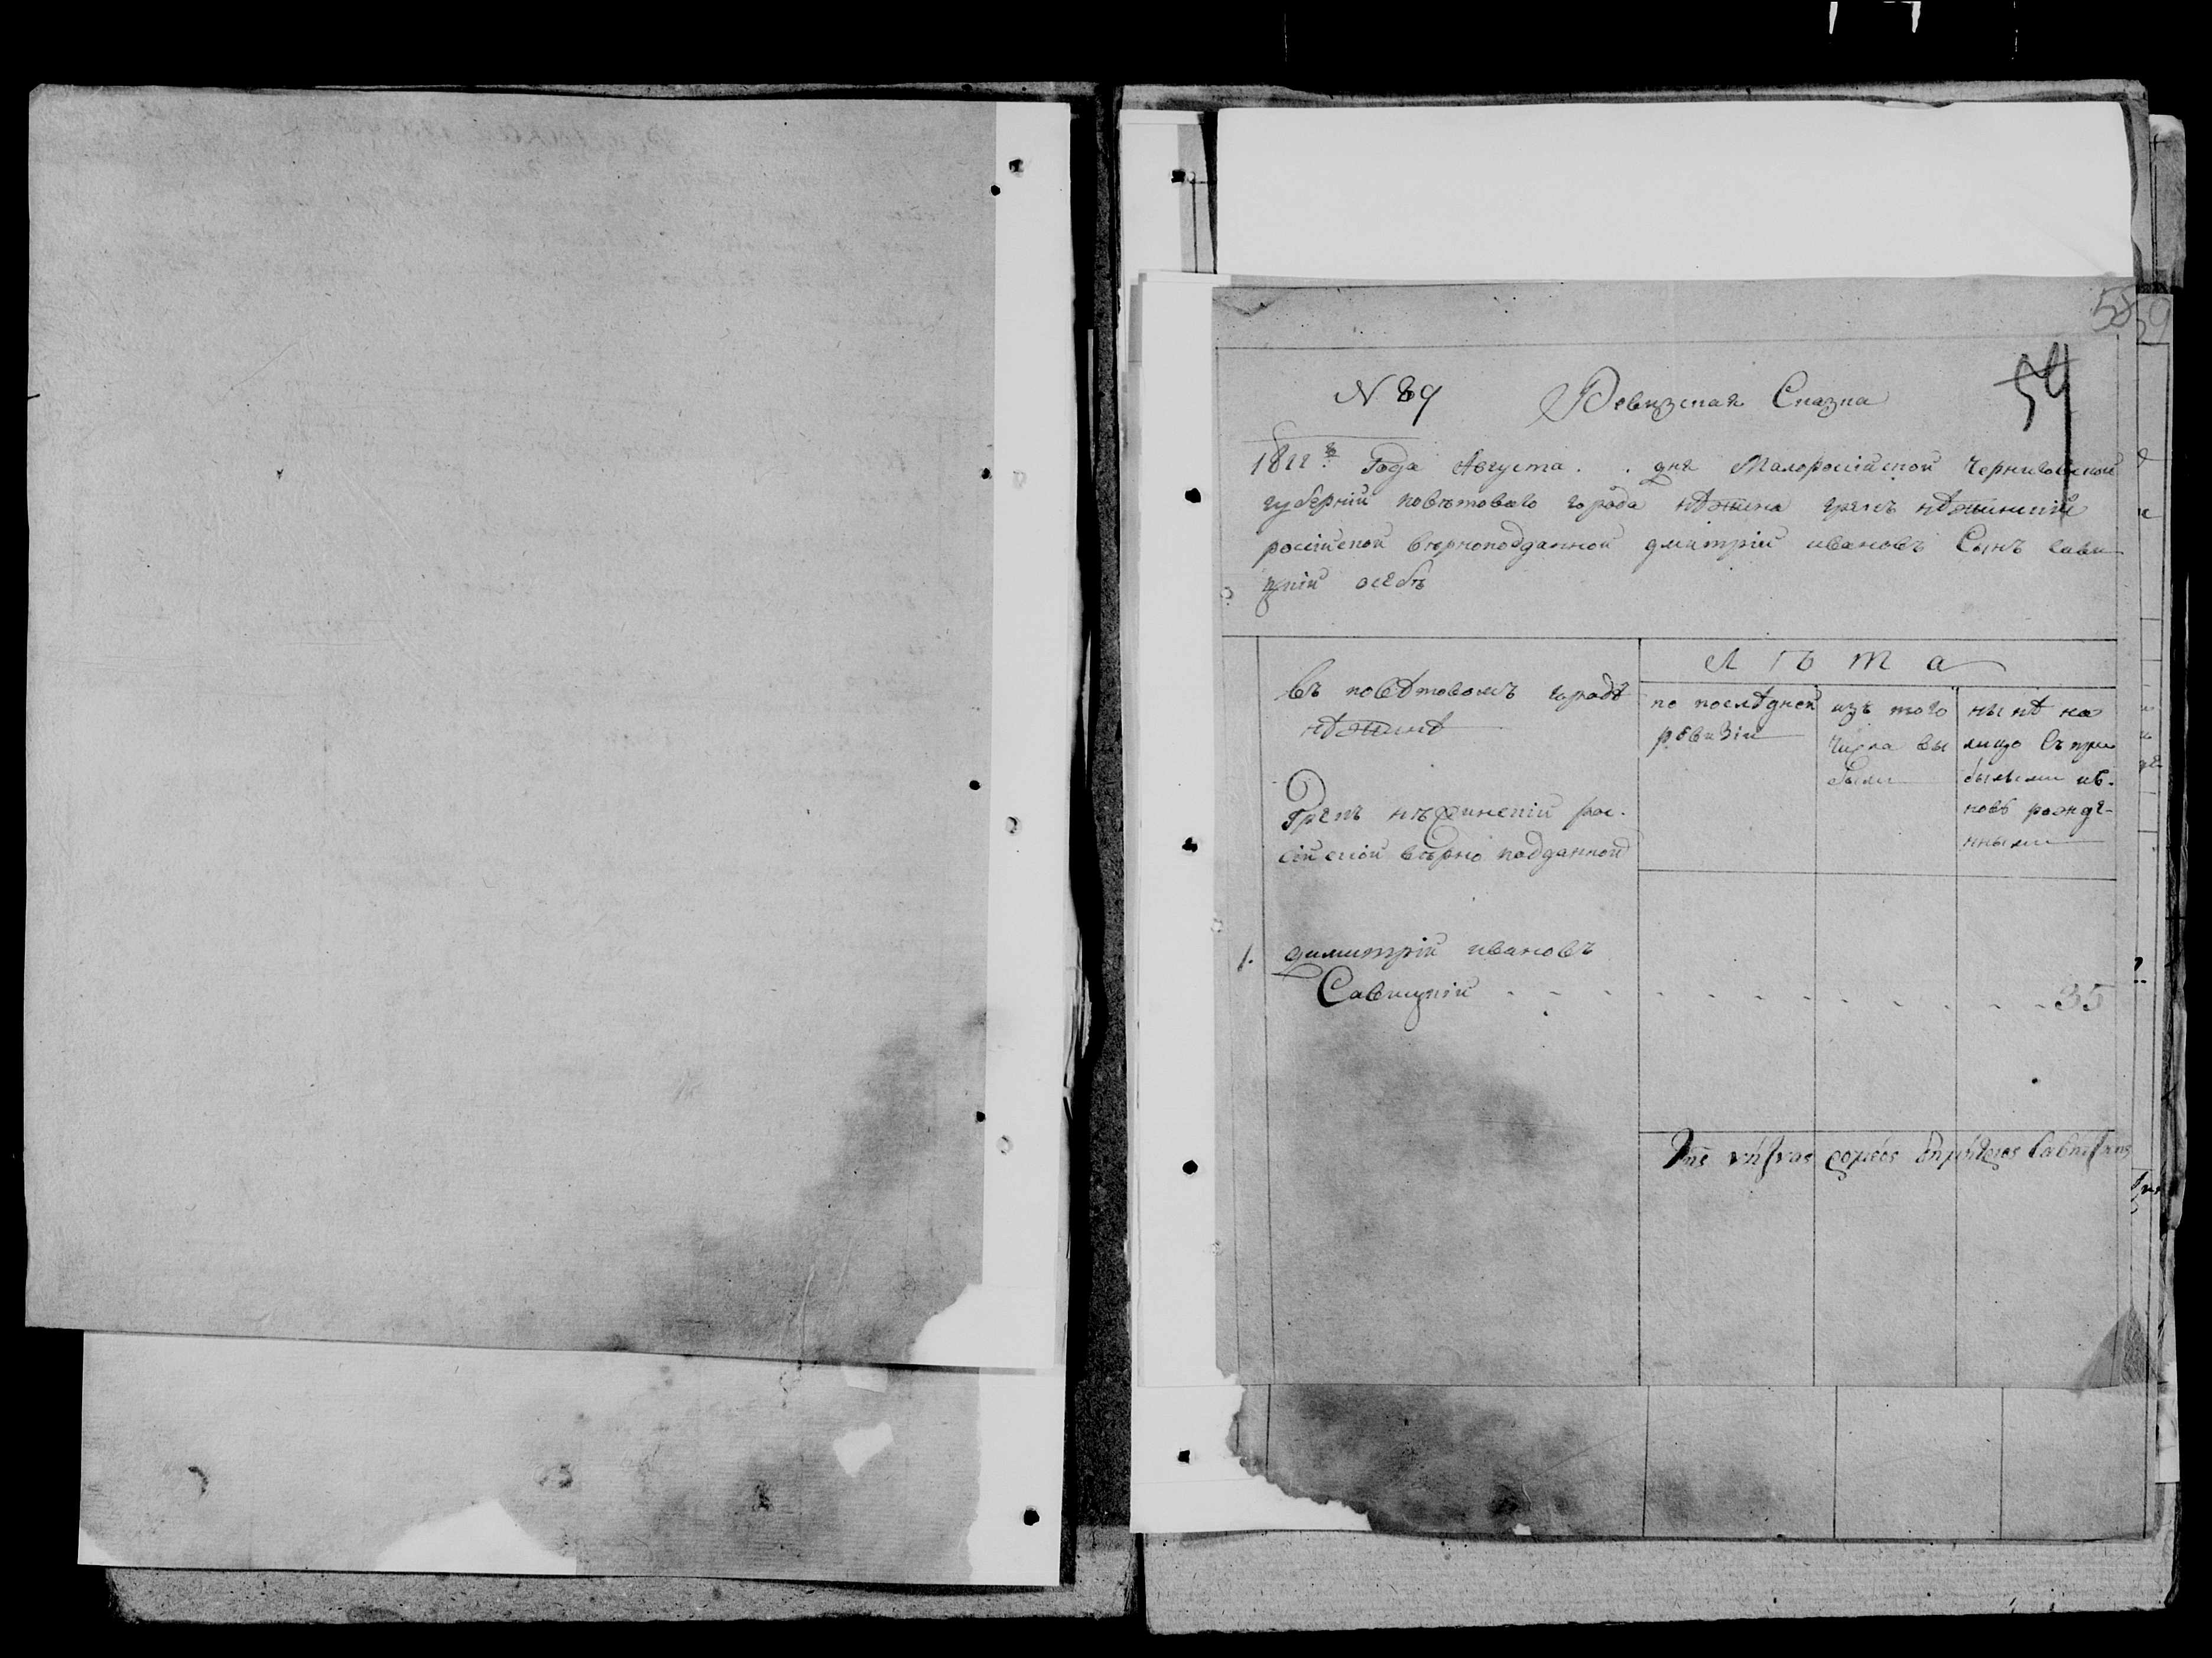 58
59
N 89 Ревизская Сказка
54
1811го Года Августа . . дня Малороссійской Черниговской
губерніи повѣтового города нѣжина грекъ нѣжинскій
россійской вѣрноподданной дмитрій ивановъ Сынъ сави
цкій осебѣ
въ повѣтовомъ городѣ
нѣжинѣ
Лѣта
по послѣдней
ревизіи
изъ того
числа вы
были
нынѣ на
лицо съ при
былыми ив.
новъ рожде-
нными
Грекъ нѣжинскій рос.
сійской вѣрно подданной
1. димитрій ивановъ
Савицкій 35
δημήτριος